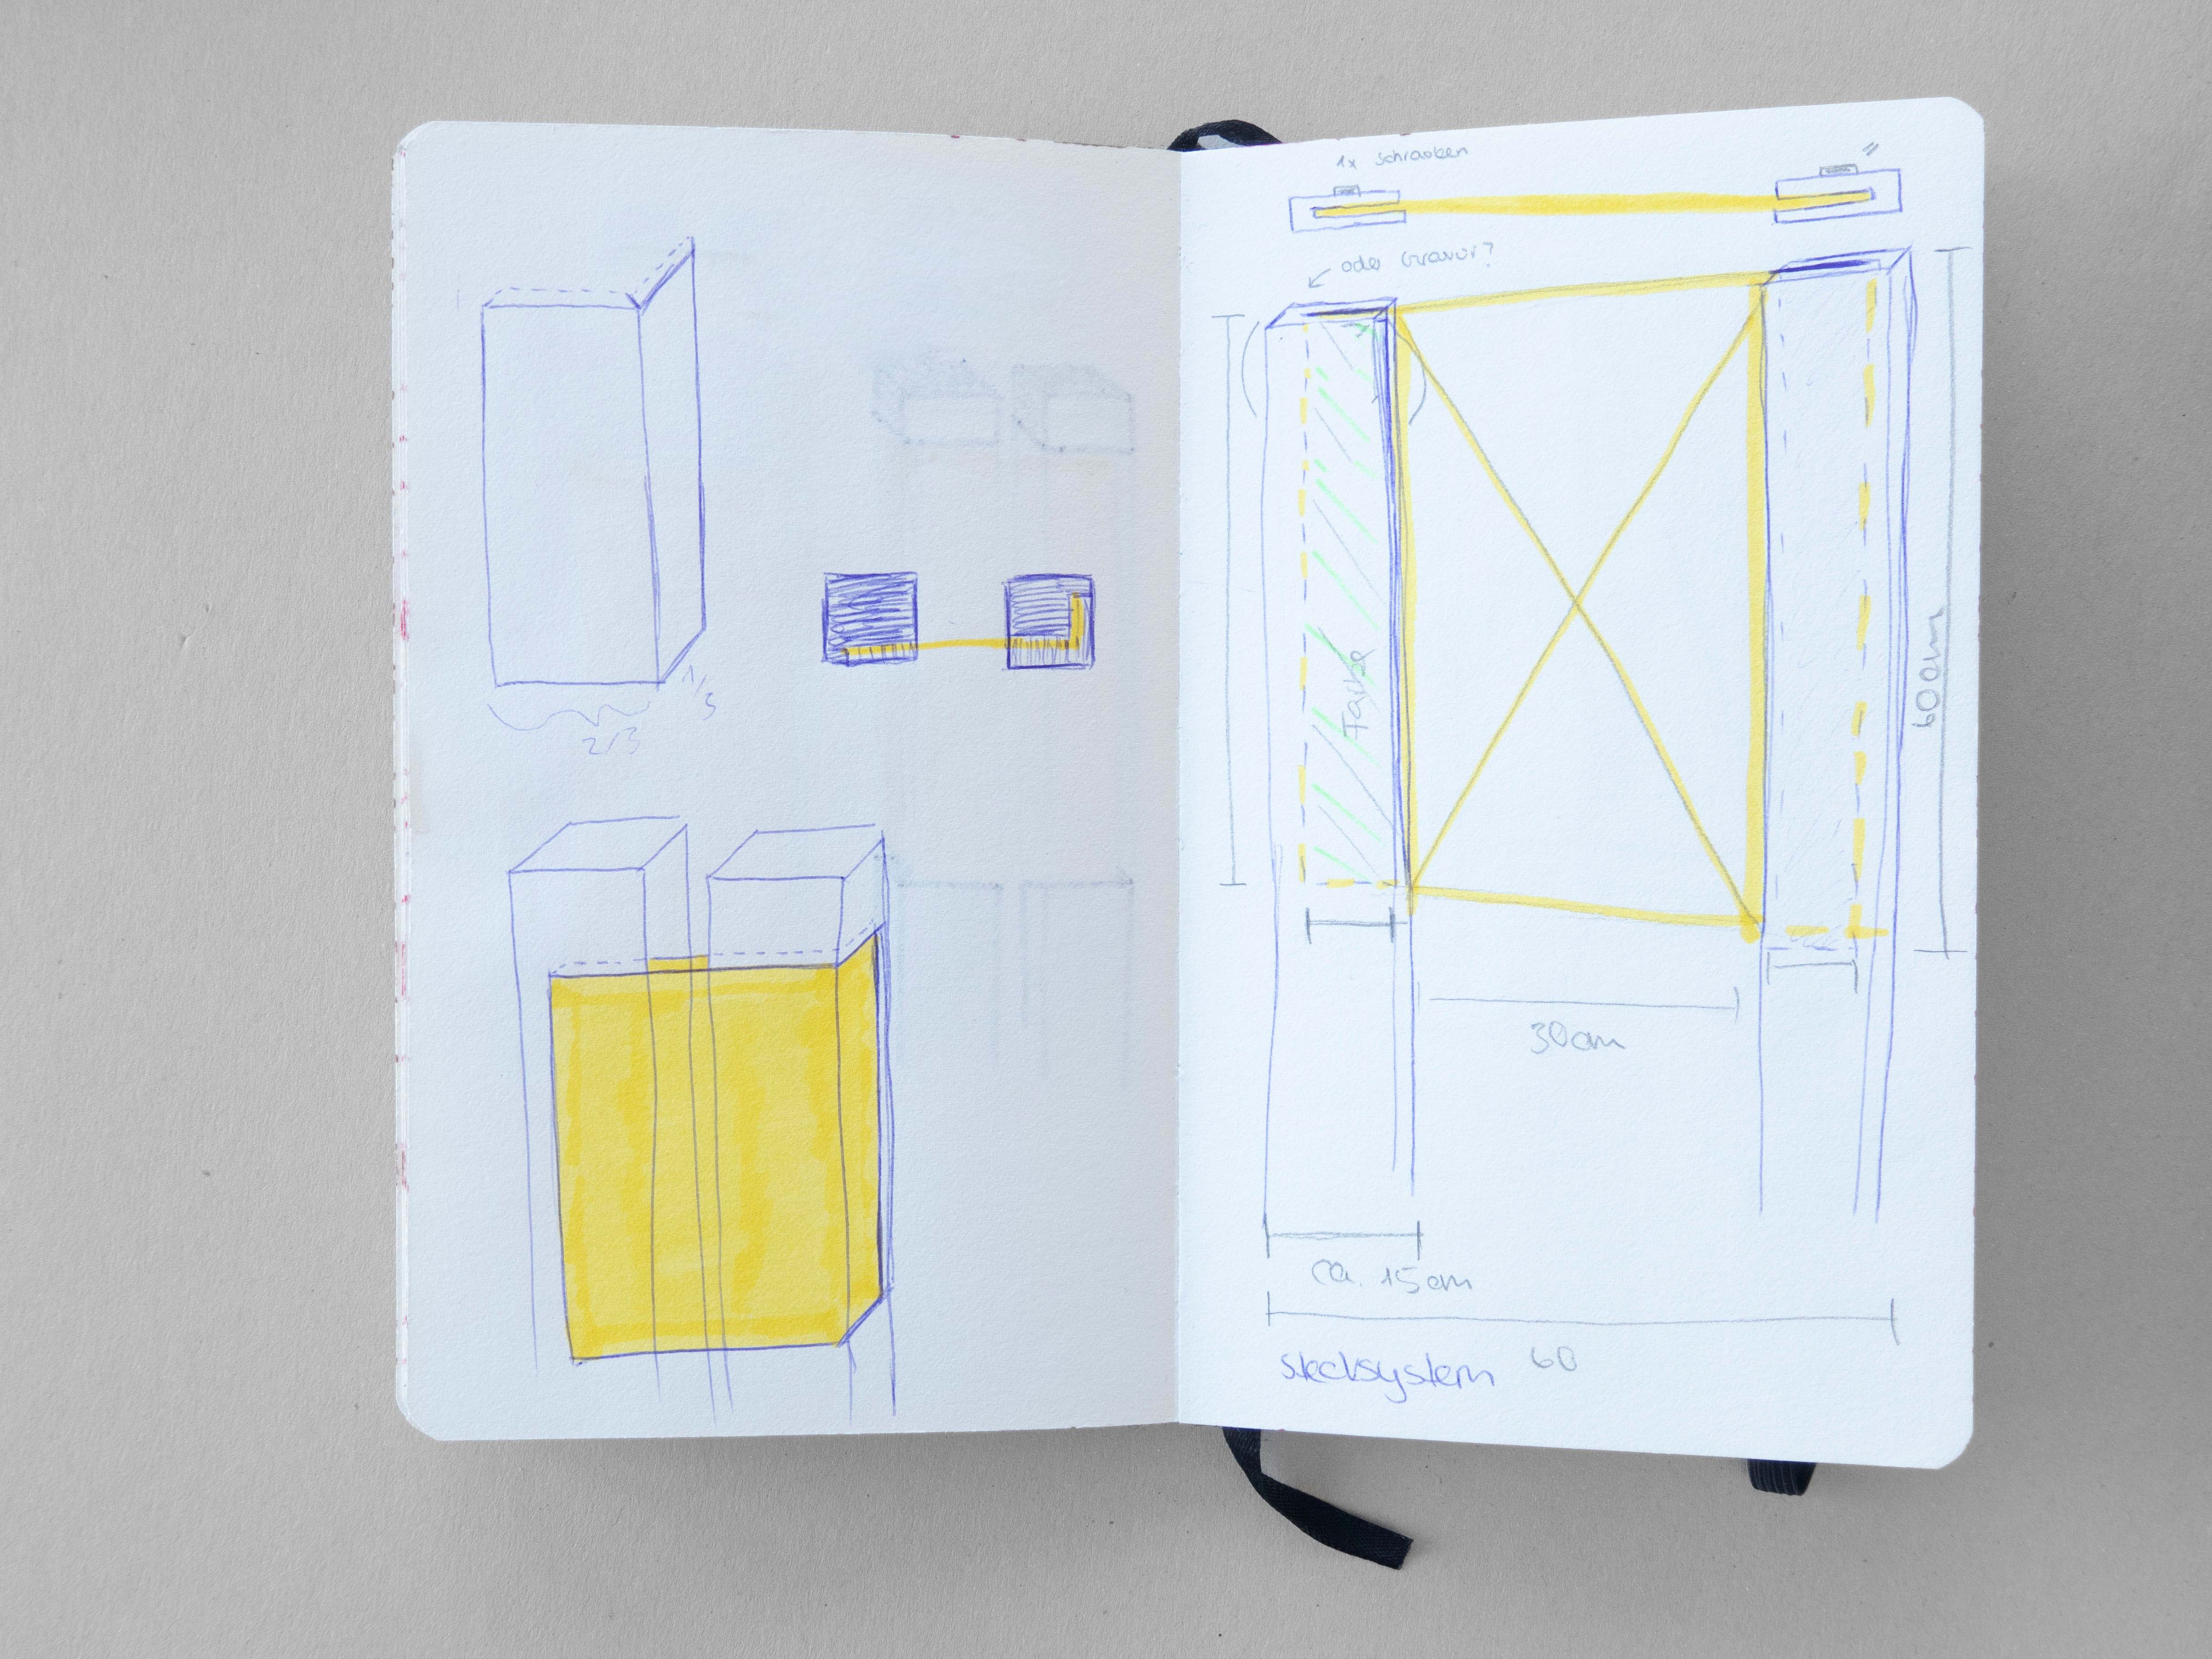 2/3
1/3
1x Schrauben
"
oder Gravur?
Farbe
60cm
30cm
ca. 15cm
60
stecksystem